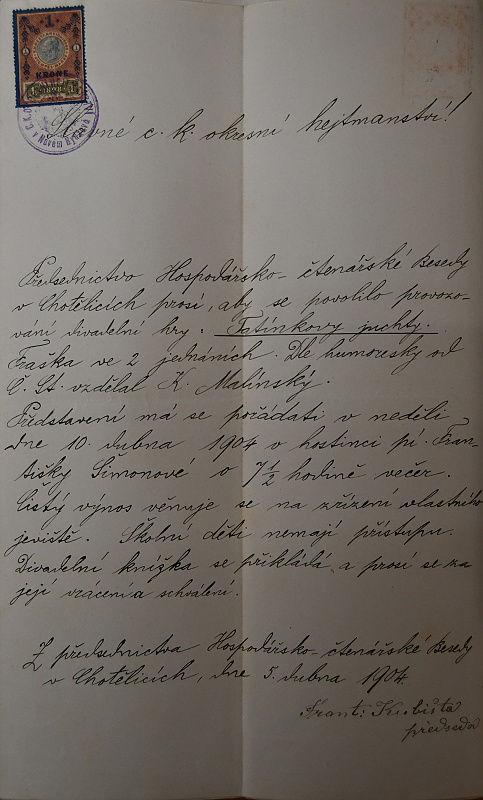 1
KRONE
1898
Slavné c. k. okresní hejtmanství!
Předsednictvo Hospodářsko-čtenářské Besedy
v Chotělicích prosí, aby se povolilo provozo-
vání divadelní hry. Tatínkovy juchty.
Fraška ve 2 jednáních. Dle humoresky od
Č. St. vzdělal K. Malínský.
Představení má se pořádati v neděli
dne 10. dubna 1904 v hostinci pí. Fran-
tišky Šimonové o 7 1/2 hodině večer.
Čistý výnos věnuje se na zřízení vlastního
jeviště. Školní děti nemají přístupu.
Divadelní knížka se přikládá a prosí se za
její vrácení a schválení.
Z předsednictva Hospodářsko-čtenářské Besedy
v Chotělicích, dne 5. dubna 1904.
Frant. Kubišta
předseda